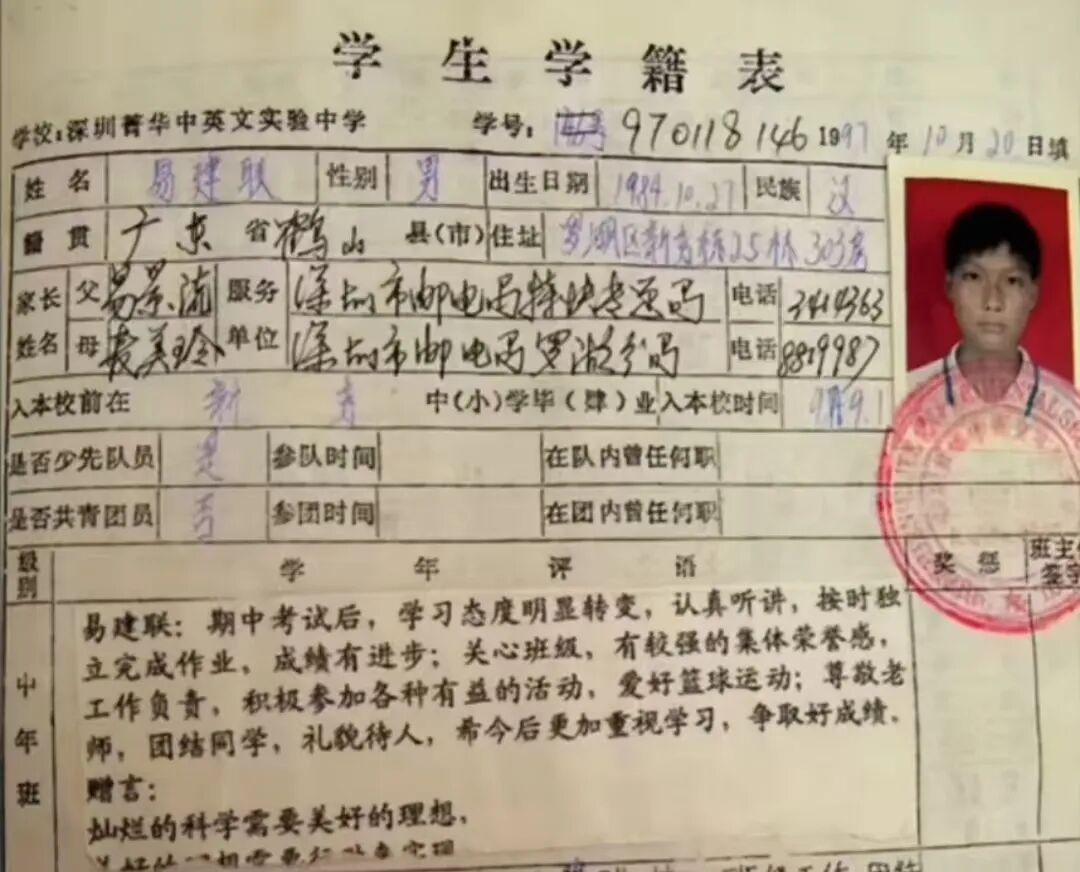 学生学籍表
学校:深圳菁华中英文实验中学 学号: 970118146 1997年10月20日填
姓名 易建联 性别 男 出生日期 1984.10.27 民族 汉
籍贯 广东省鹤山县(市) 住址 罗湖区新秀村25栋303房
家长姓名 父 易景流 服务单位 深圳市邮电局特快专递局 电话 3414363
母 麦美玲 深圳市邮电局罗湖分局 电话 8819987
入本校前在 新秀 中(小)学毕(肄)业 入本校时间 9.1
是否少先队员 是 参队时间 在队内曾任何职
是否共青团员 否 参团时间 在团内曾任何职
级别 学年评语 奖惩 班主
中年班
易建联:期中考试后,学习态度明显转变,认真听讲,按时独
立完成作业,成绩有进步;关心班级,有较强的集体荣誉感,
工作负责,积极参加各种有益的活动,爱好篮球运动;尊敬老
师,团结同学,礼貌待人,希今后更加重视学习,争取好成绩。
赠言:
灿烂的科学需要美好的理想,